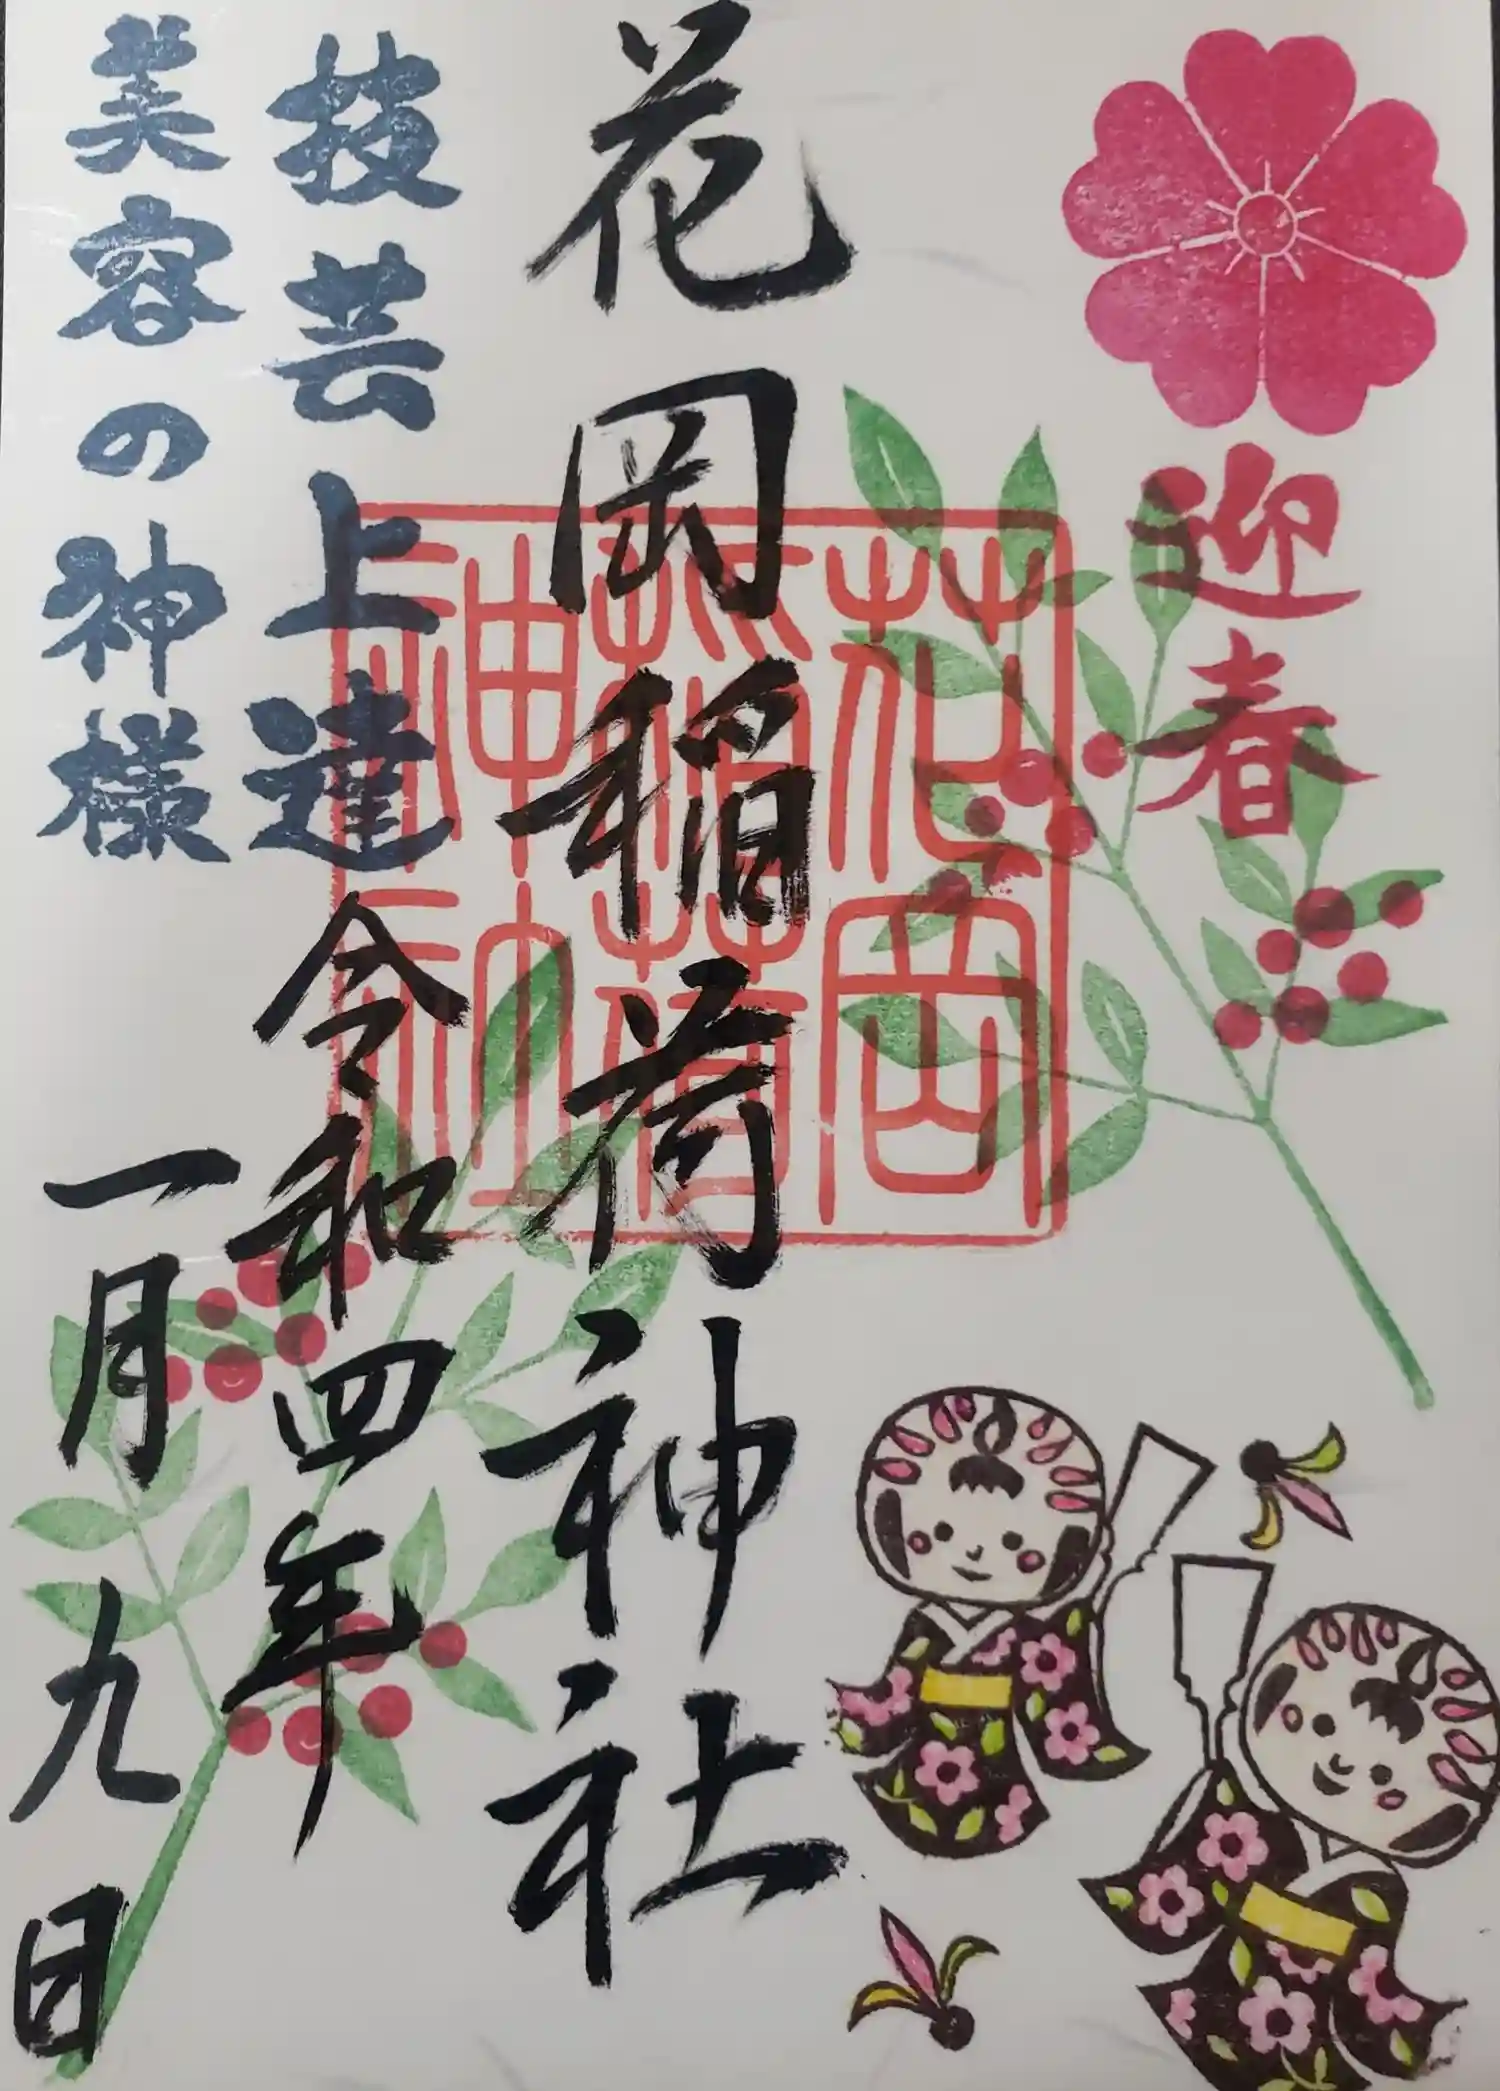 迎春
花岡稲荷神社
花岡稲荷神社
技芸上達
美容の神様
令和四年
一月九日